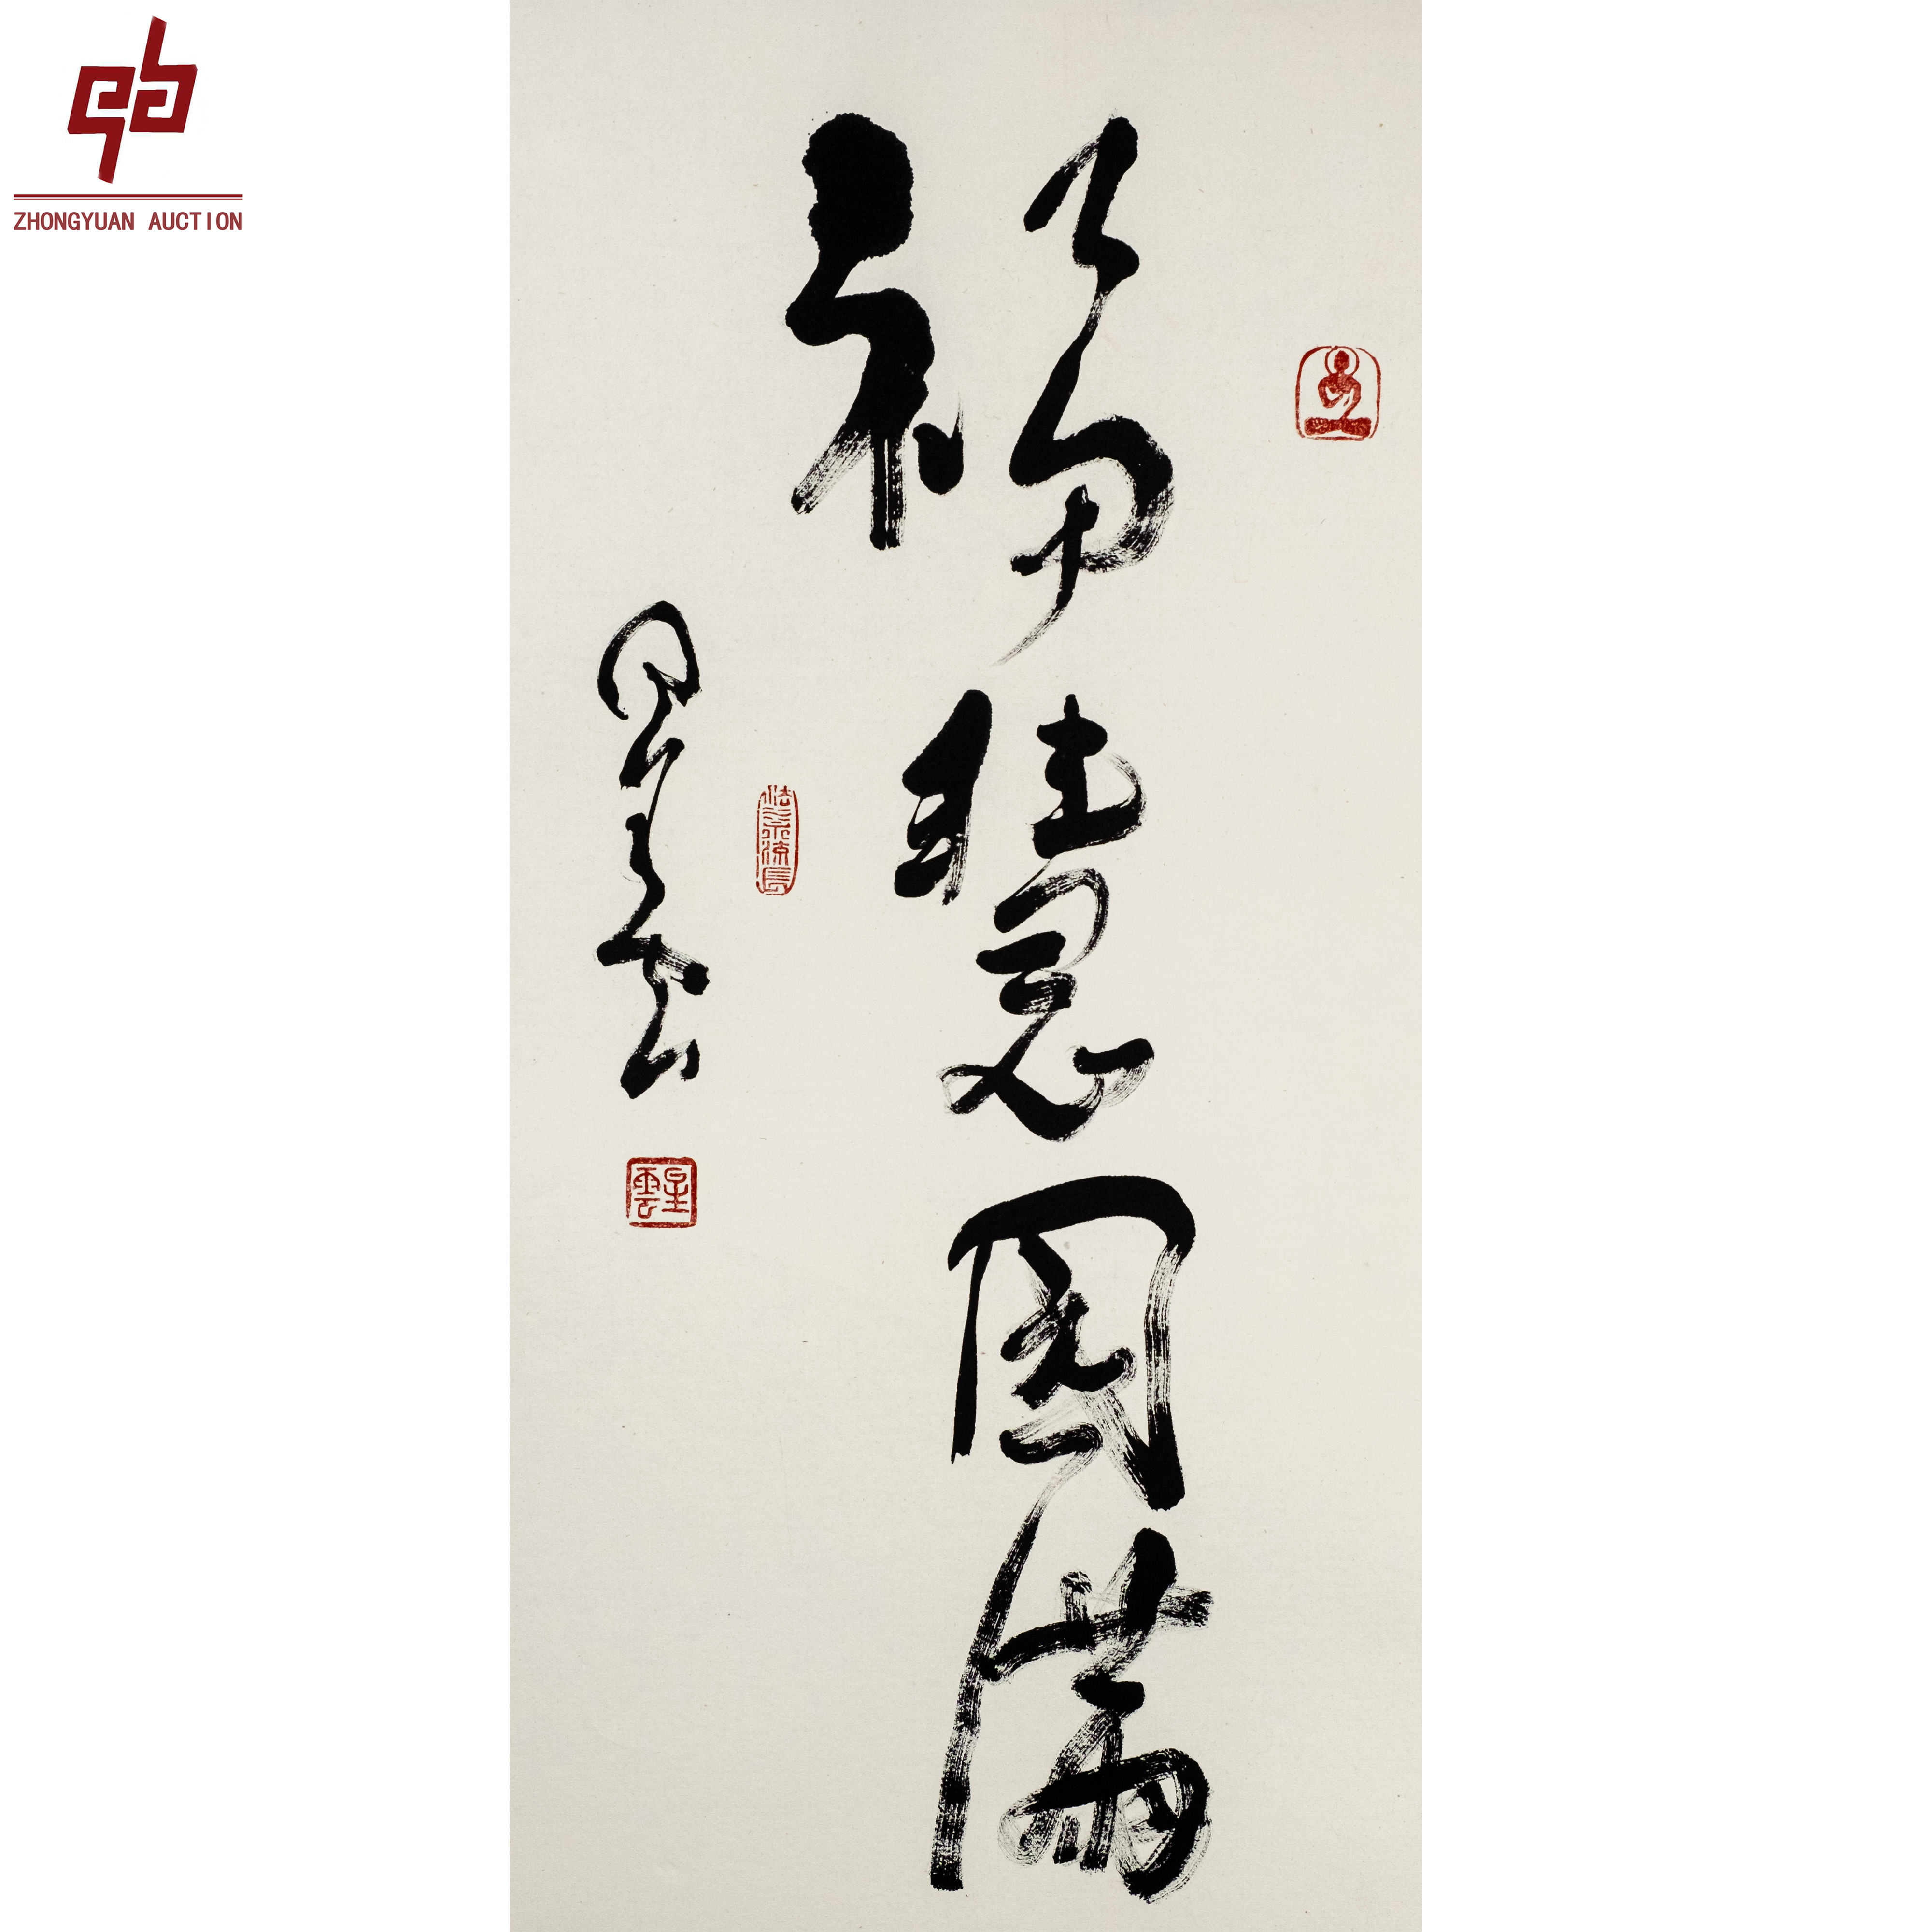 ZHONGYUAN AUCTION
福慧圓滿
星雲
星雲